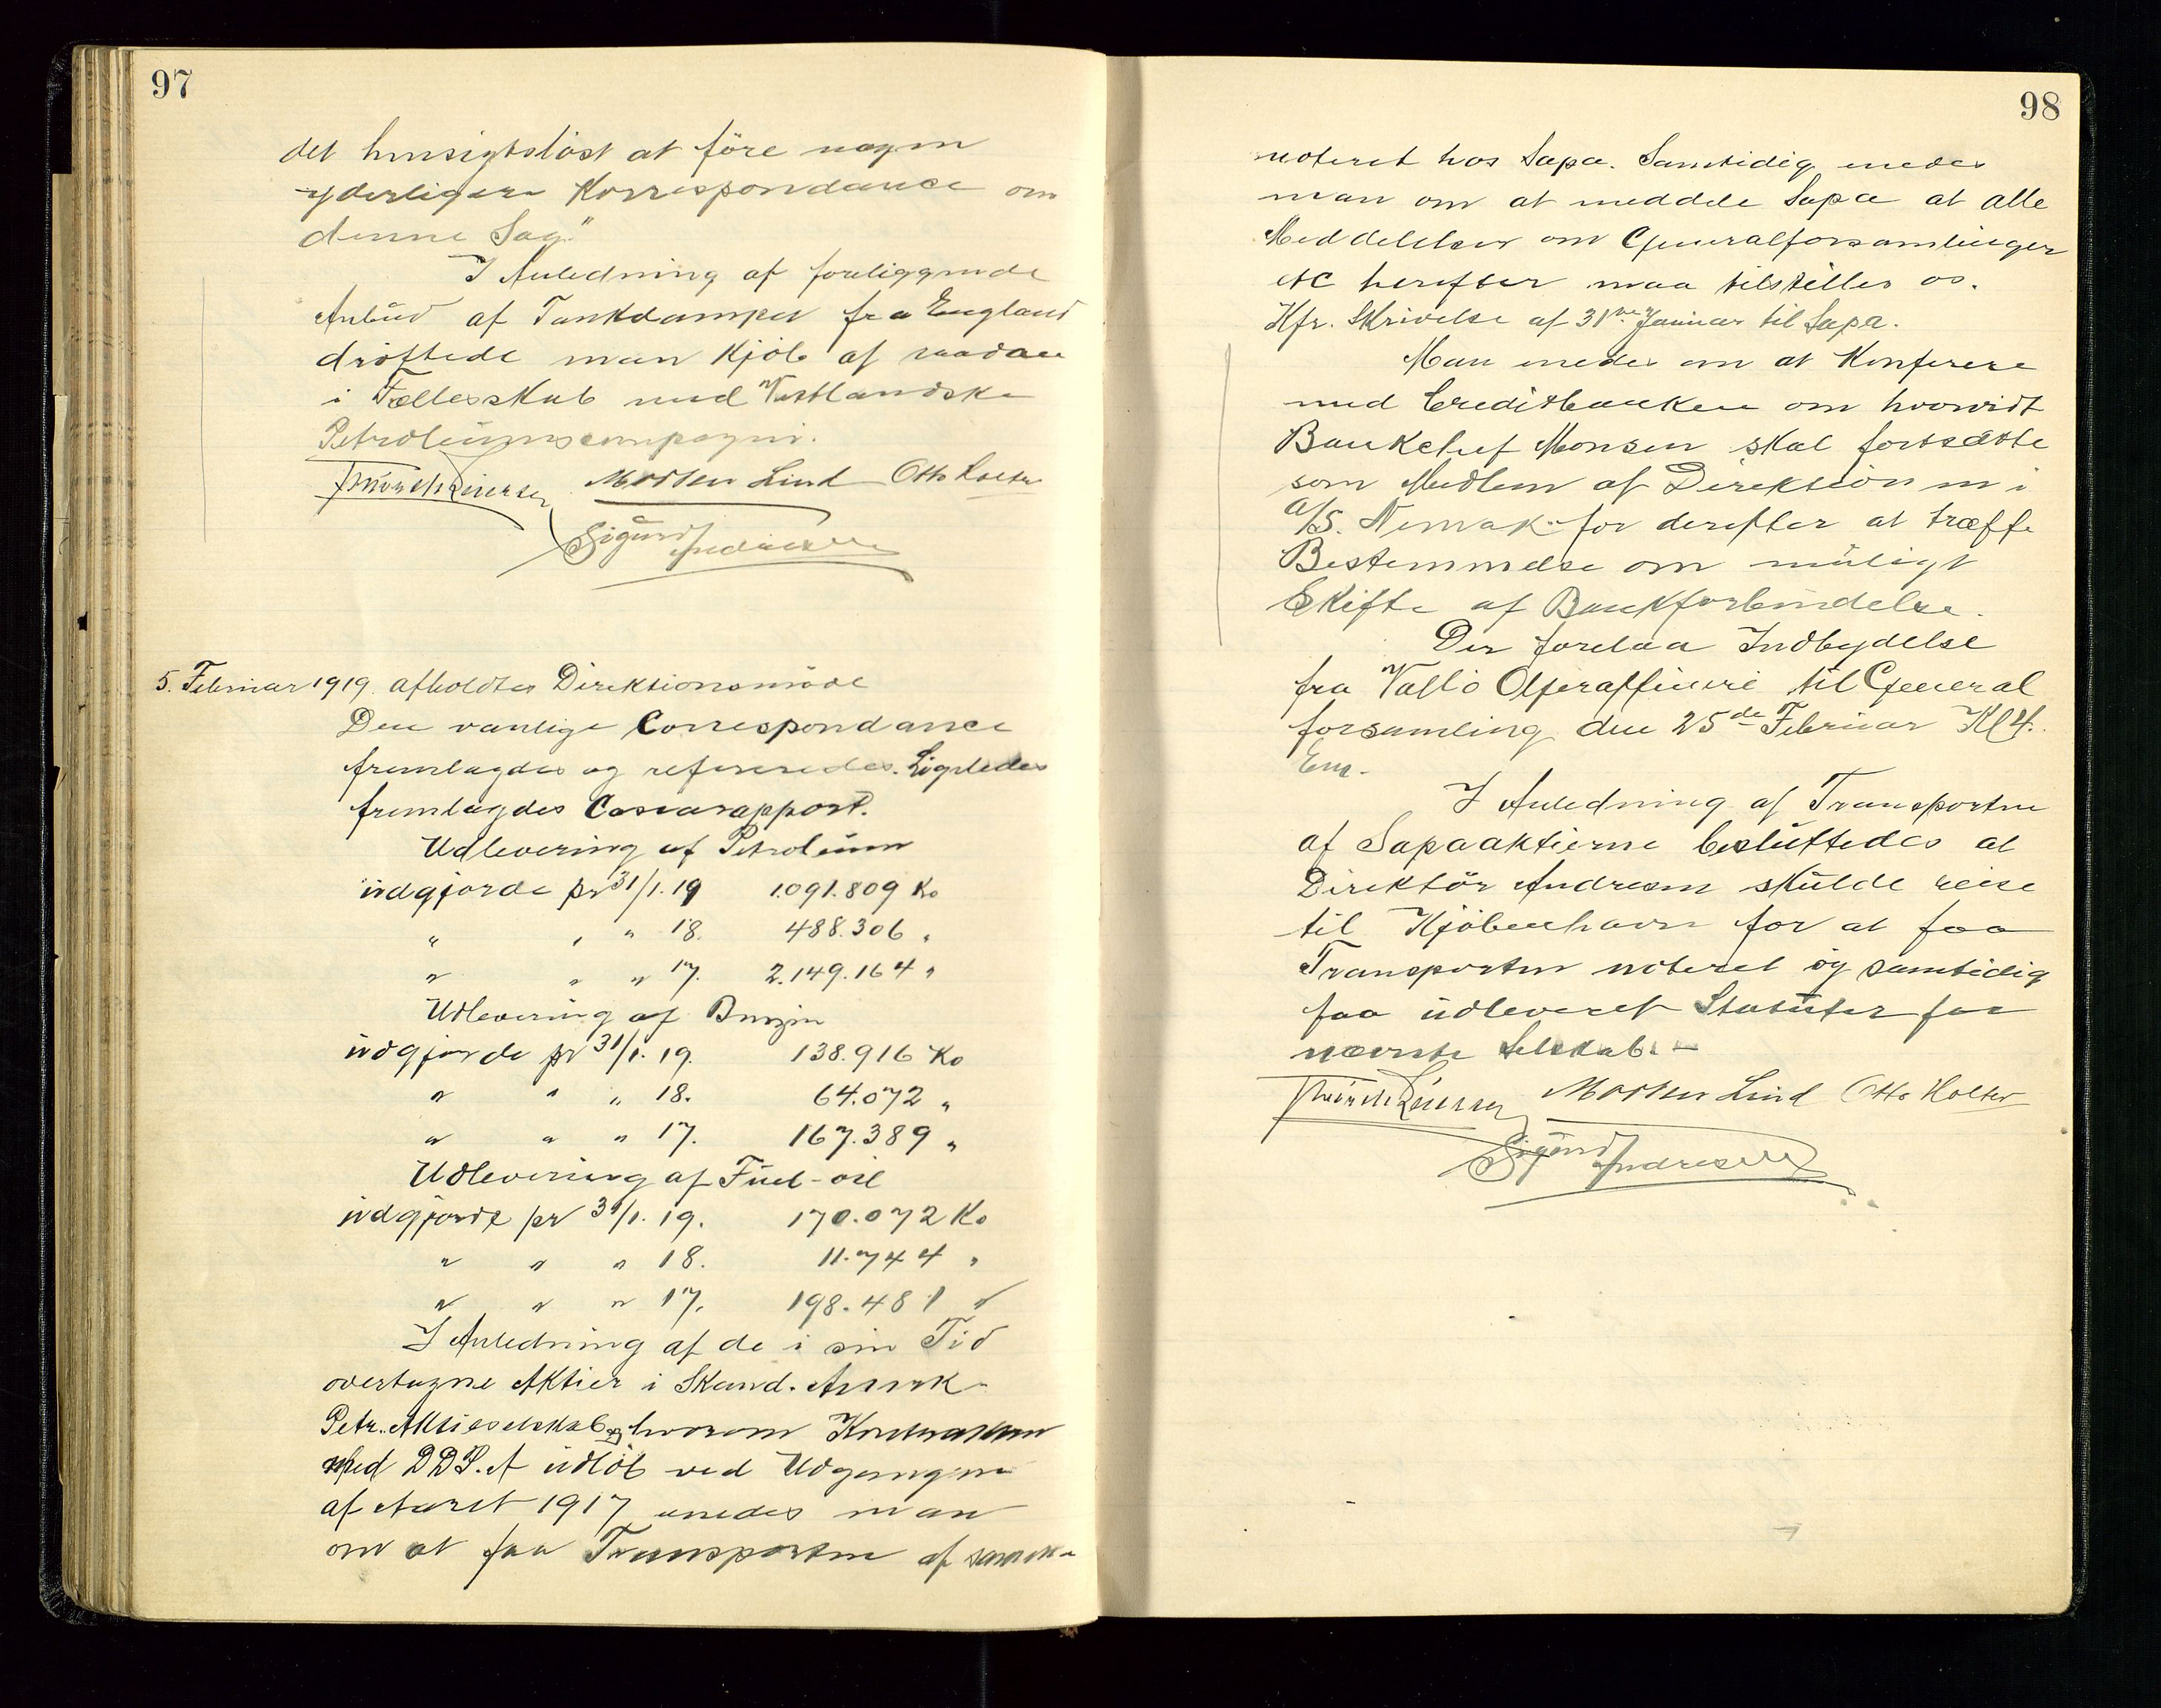 97
det hensigtsløst at føre nogen
yderligere Korrespondance om
denne Sag."
I Anledning af foreliggende
Anbud af Tankdamper fra England
drøftede man Kjøb af saadan
i Fællesskab med Vestlandske
Petroleumscompagni.
Morten Lind Otto Holter
Sigurd Andresen
5. Februar 1919 afholdtes Direktionsmøde
Den vanlige Correspondance
fremlagdes og refereredes. Ligeledes
fremlagdes Cassarapport.
Udlevering af Petroleum
udgjorde pr 31/1. 19 1.091.809 Ko
" " " 18. 488.306 "
" " " 17. 2.149.164 "
Udlevering af Benzin
udgjorde pr 31/1. 19. 138.916 Ko
" " " 18. 64.072 "
" " " 17. 167.389 "
Udlevering af Fuel-oil
udgjorde pr 31/1. 19. 170.072 Ko
" " " 18. 11.744 "
" " " 17. 198.481 "
I Anledning af de i sin Tid
overtagne Aktier i Skand. Amrk.
Petr. Aktieselskab, hvorom Kontrakten
med DDP.A udløb ved Udgangen
af Aaret 1917 enedes man
om at faa Transporten af samme
98
noteret hos Sapa. Samtidig enedes
man om at meddele Sapa at alle
Meddelelser om Generalforsamlinger
etc herefter maa tilstilles os.
Kfr. Skrivelse af 31te Januar til Sapa.
Man enedes om at Konferere
med Creditbanken om hvorvidt
Bankchef Monsen skal fortsætte
som Medlem af Direktionen i
A/S. Nemak for derefter at træffe
Bestemmelse om muligt
Skifte af Bankforbindelse.
Der forelaa Indbydelse
fra Vallø Oljeraffineri til General
forsamling den 25de Februar Kl 4.
Em.
I Anledning af Transporten
af Sapaaktierne besluttedes at
Direktør Andresen skulde reise
til Kjøbenhavn for at faa
Transporten noteret og samtidig
faa udleveret Statuter for
nævnte Selskab. -
Morten Lind Otto Holter
Sigurd Andresen